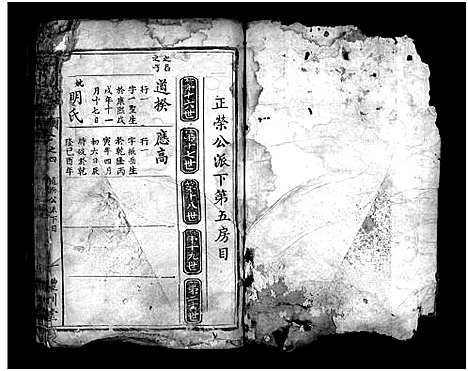 正榮公派下第五房目
第十六世
第十七世
第十八世
第十九世
第二十世
之呂
之子
道揆
行一
字一聖生
於康熙戊
戌年十一
月十七日
妣
明氏
應高
行一
字振岳生
於乾隆丙
寅年四月
初六日辰
時故於乾
隆己酉年